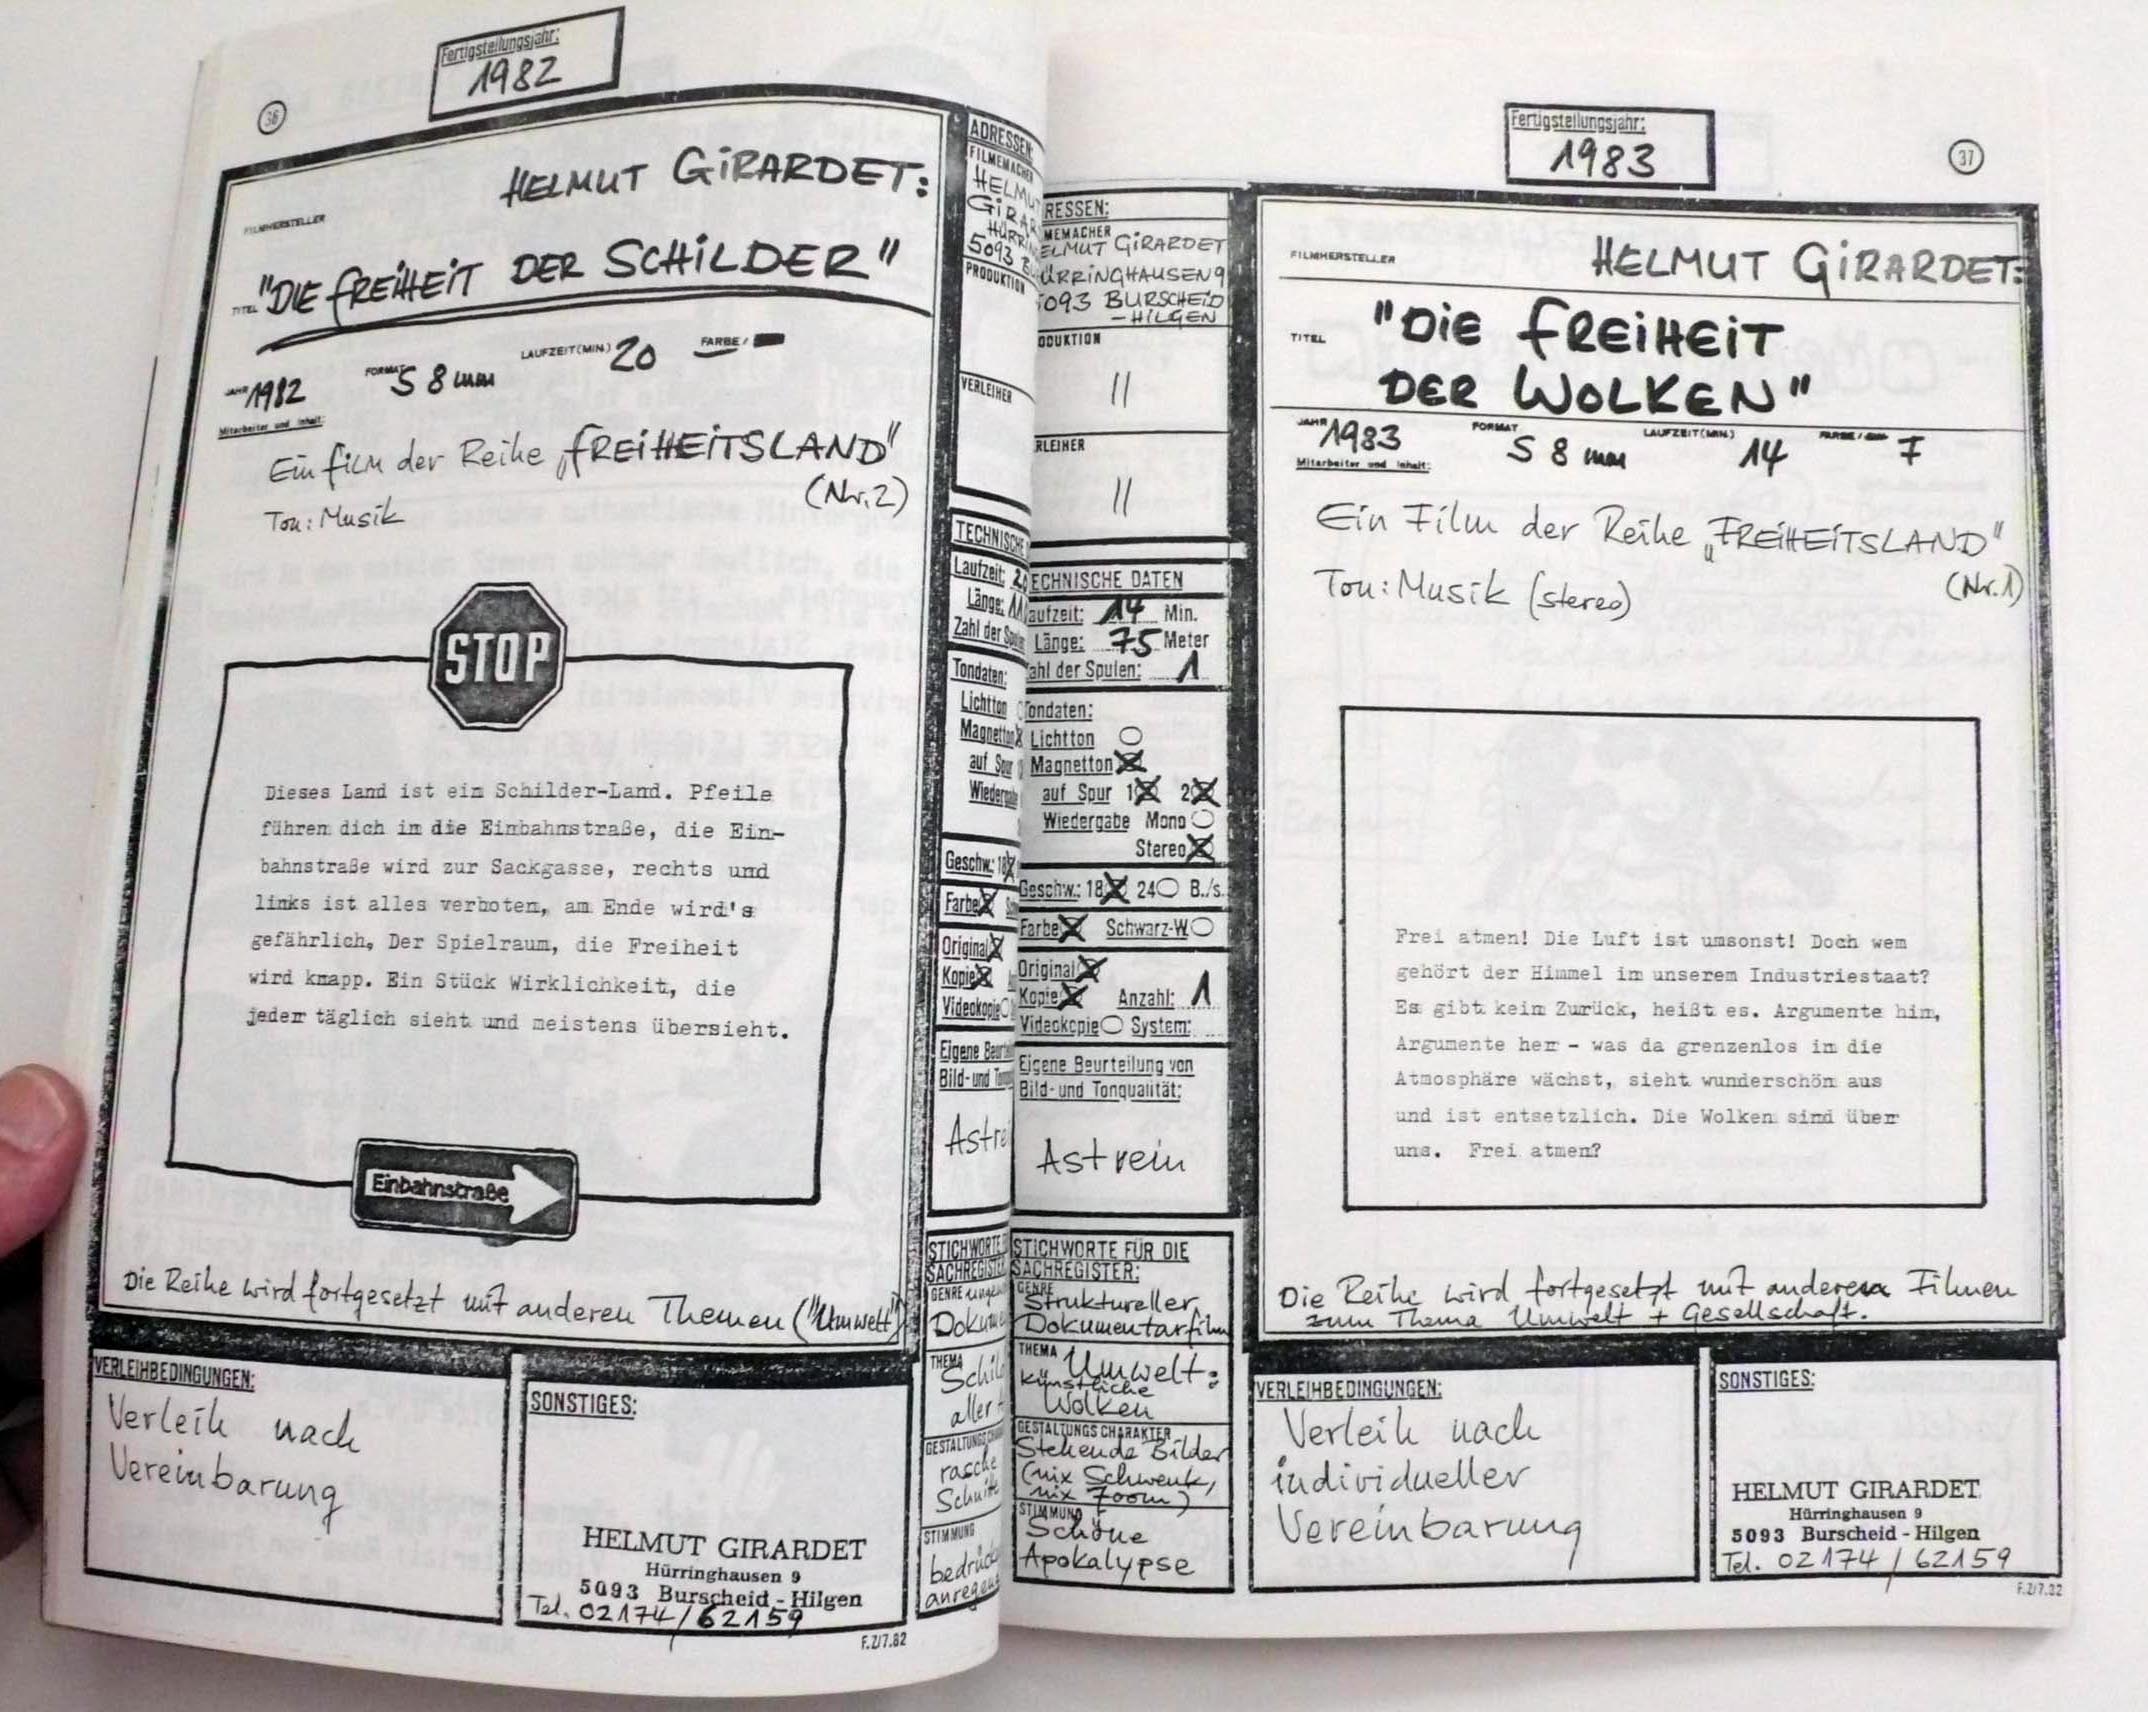 36
Fertigstellungsjahr:
1982
FILMHERSTELLER
HELMUT GIRARDET:
TITEL "DIE FREIHEIT DER SCHILDER"
JAHR 1982 FORMAT S 8 mm LAUFZEIT(MIN.) 20 FARBE/
Mitarbeiter und Inhalt:
Ein Film der Reihe „FREIHEITSLAND"
(Nr.2)
Ton: Musik
STOP
Dieses Land ist ein Schilder-Land. Pfeile
führen dich in die Einbahnstraße, die Ein-
bahnstraße wird zur Sackgasse, rechts und
links ist alles verboten, am Ende wird's
gefährlich, Der Spielraum, die Freiheit
wird knapp. Ein Stück Wirklichkeit, die
jeder täglich sieht und meistens übersieht.
Einbahnstraße
Die Reihe wird fortgesetzt mit anderen Themen ("Umwelt")
VERLEIHBEDINGUNGEN:
Verleih nach
Vereinbarung
SONSTIGES:
HELMUT GIRARDET
Hürringhausen 9
5093 Burscheid - Hilgen
Tel. 02174/62159
F.Z/7.82
ADRESSEN:
FILMEMACHER
HELMUT
GIRAR
HÜRRIN
5093 BU
PRODUKTION
VERLEIHER
TECHNISCHE
Laufzeit: 20
Länge: 11
Zahl der Spulen
Tondaten:
Lichtton
Magnetton
auf Spur
Wiedergabe
Geschw.: 18
Farbe
Original
Kopie
Videokopie
Eigene Beurteil
Bild- und Ton
Astrei
STICHWORTE F
SACHREGISTER
GENRE
Dokume
THEMA
Schil
aller
GESTALTUNGSCHARA
rasche
Schnitte
STIMMUNG
bedrück
anregen
37
Fertigstellungsjahr:
1983
RESSEN:
MEMACHER
ELMUT GIRARDET
ÜRRINGHAUSEN 9
5093 BURSCHEID
-HILGEN
ODUKTION
"
RLEIHER
"
ECHNISCHE DATEN
aufzeit: 14 Min.
Länge: 75 Meter
ahl der Spulen: 1
Tondaten:
Lichtton
Magnetton
auf Spur 1 2
Wiedergabe Mono
Stereo
Geschw.: 18 24 B./s.
Farbe Schwarz-W.
Original
Kopie Anzahl: 1
Videokopie System:
Eigene Beurteilung von
Bild- und Tonqualität:
Astrein
STICHWORTE FÜR DIE
SACHREGISTER:
GENRE
Struktureller
Dokumentarfilm
THEMA Umwelt:
Künstliche
Wolken
GESTALTUNGSCHARAKTER
Stehende Bilder
(nix Schwenk,
nix Zoom)
STIMMUNG
Schöne
Apokalypse
FILMHERSTELLER
HELMUT GIRARDET:
TITEL "DIE FREIHEIT
DER WOLKEN"
JAHR 1983 FORMAT S 8 mm LAUFZEIT(MIN.) 14 FARBE/ F
Mitarbeiter und Inhalt:
Ein Film der Reihe „FREIHEITSLAND"
(Nr.1)
Ton: Musik (stereo)
Frei atmen! Die Luft ist umsonst! Doch wem
gehört der Himmel in unserem Industriestaat?
Es gibt kein Zurück, heißt es. Argumente hin,
Argumente her - was da grenzenlos in die
Atmosphäre wächst, sieht wunderschön aus
und ist entsetzlich. Die Wolken sind über
uns. Frei atmen?
Die Reihe wird fortgesetzt mit anderen Filmen
zum Thema Umwelt + Gesellschaft.
VERLEIHBEDINGUNGEN:
Verleih nach
individueller
Vereinbarung
SONSTIGES:
HELMUT GIRARDET
Hürringhausen 9
5093 Burscheid - Hilgen
Tel. 02174/62159